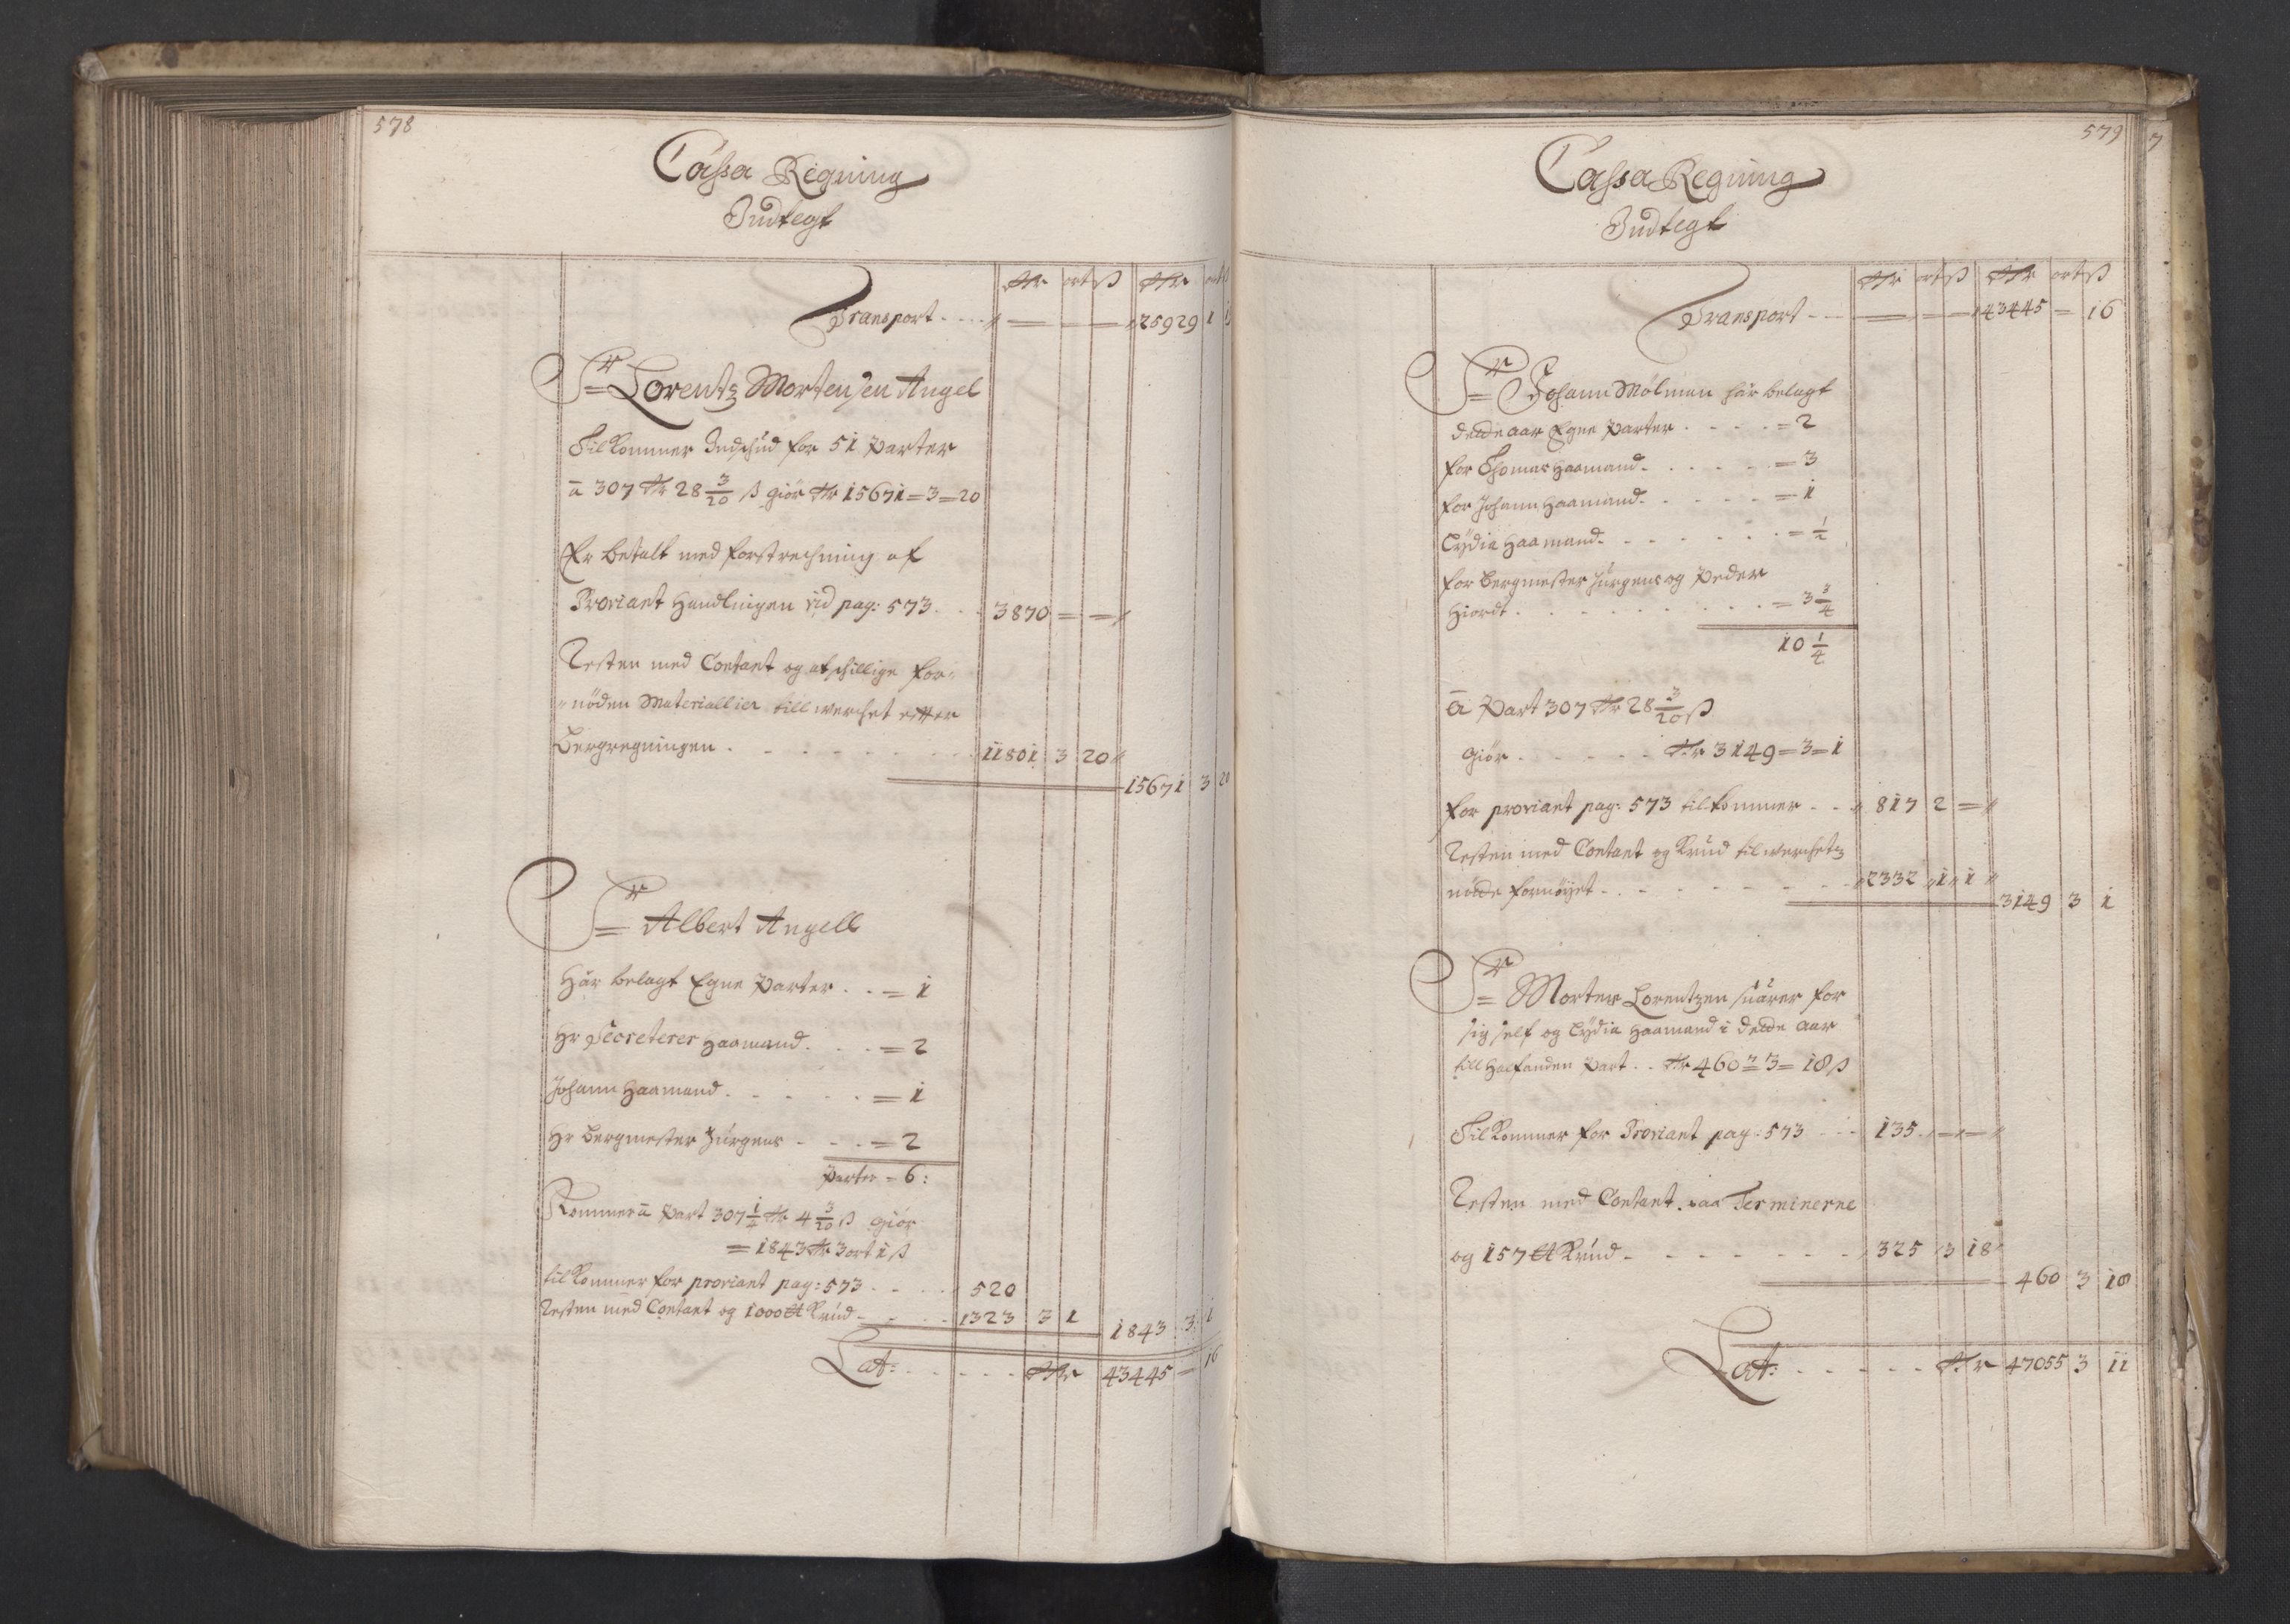 578
Cassa Regning
Indtegt
Rdr ort ß Rdr ort ß
Transport - - - - 25929 1
Sr Lorentz Mortensen Angel
Tilkommer Indschud for 51 Parter
a 307 Rdr 28 3/20 ß giör Rdr 15671=3=20
Er betalt med forstrechning af
Proviant Handlingen vid pag: 573 . . . 3870 = =
Resten med Contant og atschillige for-
nöden Materiallier till werchet efter
Bergregningen . - - - - - 11801 3 20
15671 3 20
Sr Albert Angell
Har belagt Egne Parter . . = 1
Hr Secreterer Haamand . . . = 2
Johann Haamand . - - - . = 1
Hr Bergmester Jürgens - - . = 2
Parter = 6:
Kommer a Part 307 1/4 Rdr 4 3/20 ß giör
= 1843 Rdr 3 ort 1 ß
tilkommer for proviant pag: 573 . . . . 520
Resten med Contant og 1000 ℔ Krud - - - 1323 3 1
1843 3 1
Lat: - - - - Rdr 43445 = 16
579
7
Cassa Regning
Indtegt
Rdr ort ß Rdr ort ß
Transport - - - 43445 = 16
Sr Johann Mölman har belagt
dette aar Egne Parter . - - - = 2
for Thomas Haamand - . - - - = 3
for Johann Haamand - . - - - = 1
Lydia Haamand - . - - - - = 1/2
for Bergmester Jürgens og Peder
Hiordt . - - - - - = 3 3/4
10 1/4
a Part 307 Rdr 28 3/20 ß
Giör . - - - - Rdr 3149=3=1
for proviant pag: 573 tilkommer - - 817 2 =
Resten med Contant og Krud til werchets
nötte fornöyet - . - - - - 2332 1 1
3149 3 1
Sr Morten Lorentzen suarer for
sig self og Lydia Haamand i dette aar
till Halfanden Part . . Rdr 460=3=18 ß
Tilkommer for Proviant pag: 573 - - - 135 = =
Resten med Contant paa Terminerne
og 157 ℔ Krud - - - - - - 325 3 18
460 3 18
Lat: - - - - - Rdr 47055 3 11